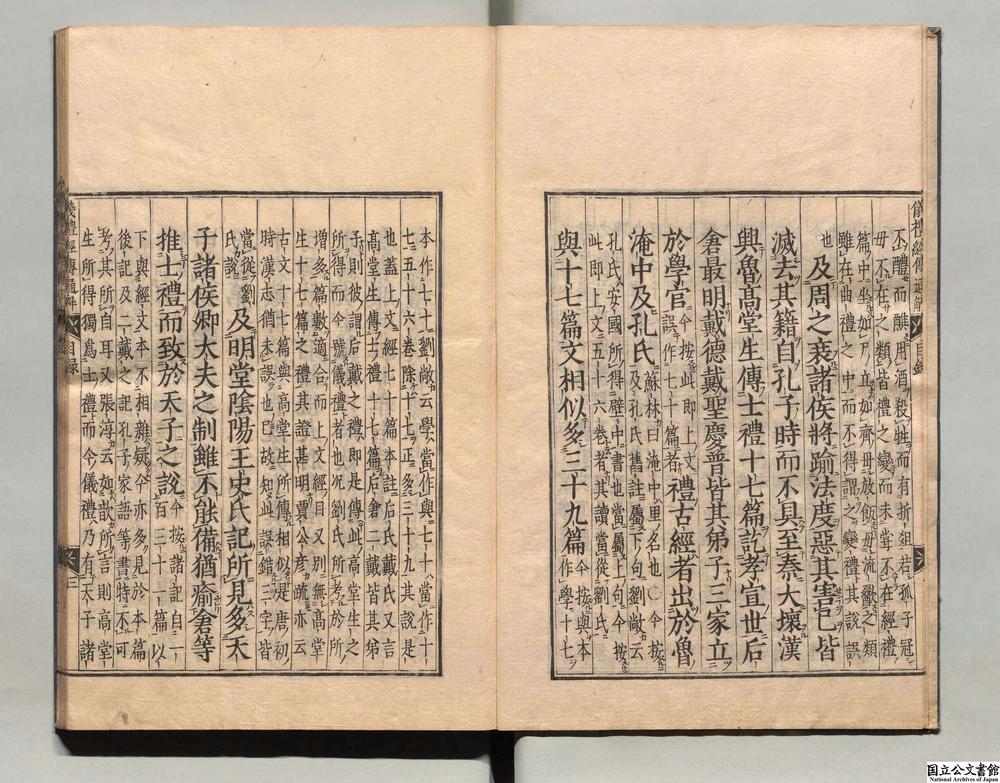 儀禮經傳通解 目錄
不醴而醮用酒殺牲而有折俎若孤子冠
毋不在之類皆禮之變而未嘗不在經禮
篇中坐如尸立如齊毋放飯毋流歠之類
雖在曲禮之中而不得謂之變禮其說誤
也
及周之衰諸侯將踰法度惡其害已皆
滅去其籍自孔子時而不具至秦大壞漢
興魯髙堂生傳士禮十七篇訖孝宣世后
倉最明戴德戴聖慶普皆其弟子三家立
於學官
今按此即上文
誤作七十篇者
禮古經者出於魯
淹中及孔氏
蘇林曰淹中里名也○今按
及孔氏舊註屬下句劉敞云
孔氏安國所得壁中書也當屬上句今按
此即上文五十六卷者其讀當從劉氏
與十七篇文相似多三十九篇
今按與本
作學十七
本作七十劉敞云學當作與七十當作十
七五十六卷除十七正多三十九其說是
也蓋上文經七十篇本註后氏戴氏又言
高堂生傳士禮十七篇后倉二戴皆其弟
子則彼謂后戴之禮即是傳此高堂生之
所得而今號儀禮者也况劉氏於所
增多篇數適合而上文經目又別無高堂
生十七篇之禮其證甚明賈公彥疏亦云
古文十七篇與高堂生所傳相似是唐初
時漢志猶未誤也巳故知此誤錯二字皆
當從劉
氏說
及明堂陰陽王史氏記所見多天
子諸侯卿大夫之制雖不能備猶瘉倉等
推士禮而致於天子之說
今按諸記自一
百三十一篇以
下與經文本不相雜疑今亦多見於本篇
後記及二戴之記孔子家語等書特不可
考其所自耳又張淳云如歆所言則高堂
生所得獨爲士禮而今儀禮乃有天子諸
儀禮經傳通解 目錄 三
国立公文書館
National Archives of Japan